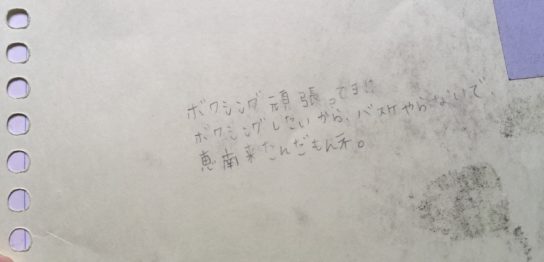 ボクシング頑張ってます!!
ボクシングしたいから、バスケやらないで、
恵南来たんだもんネ。